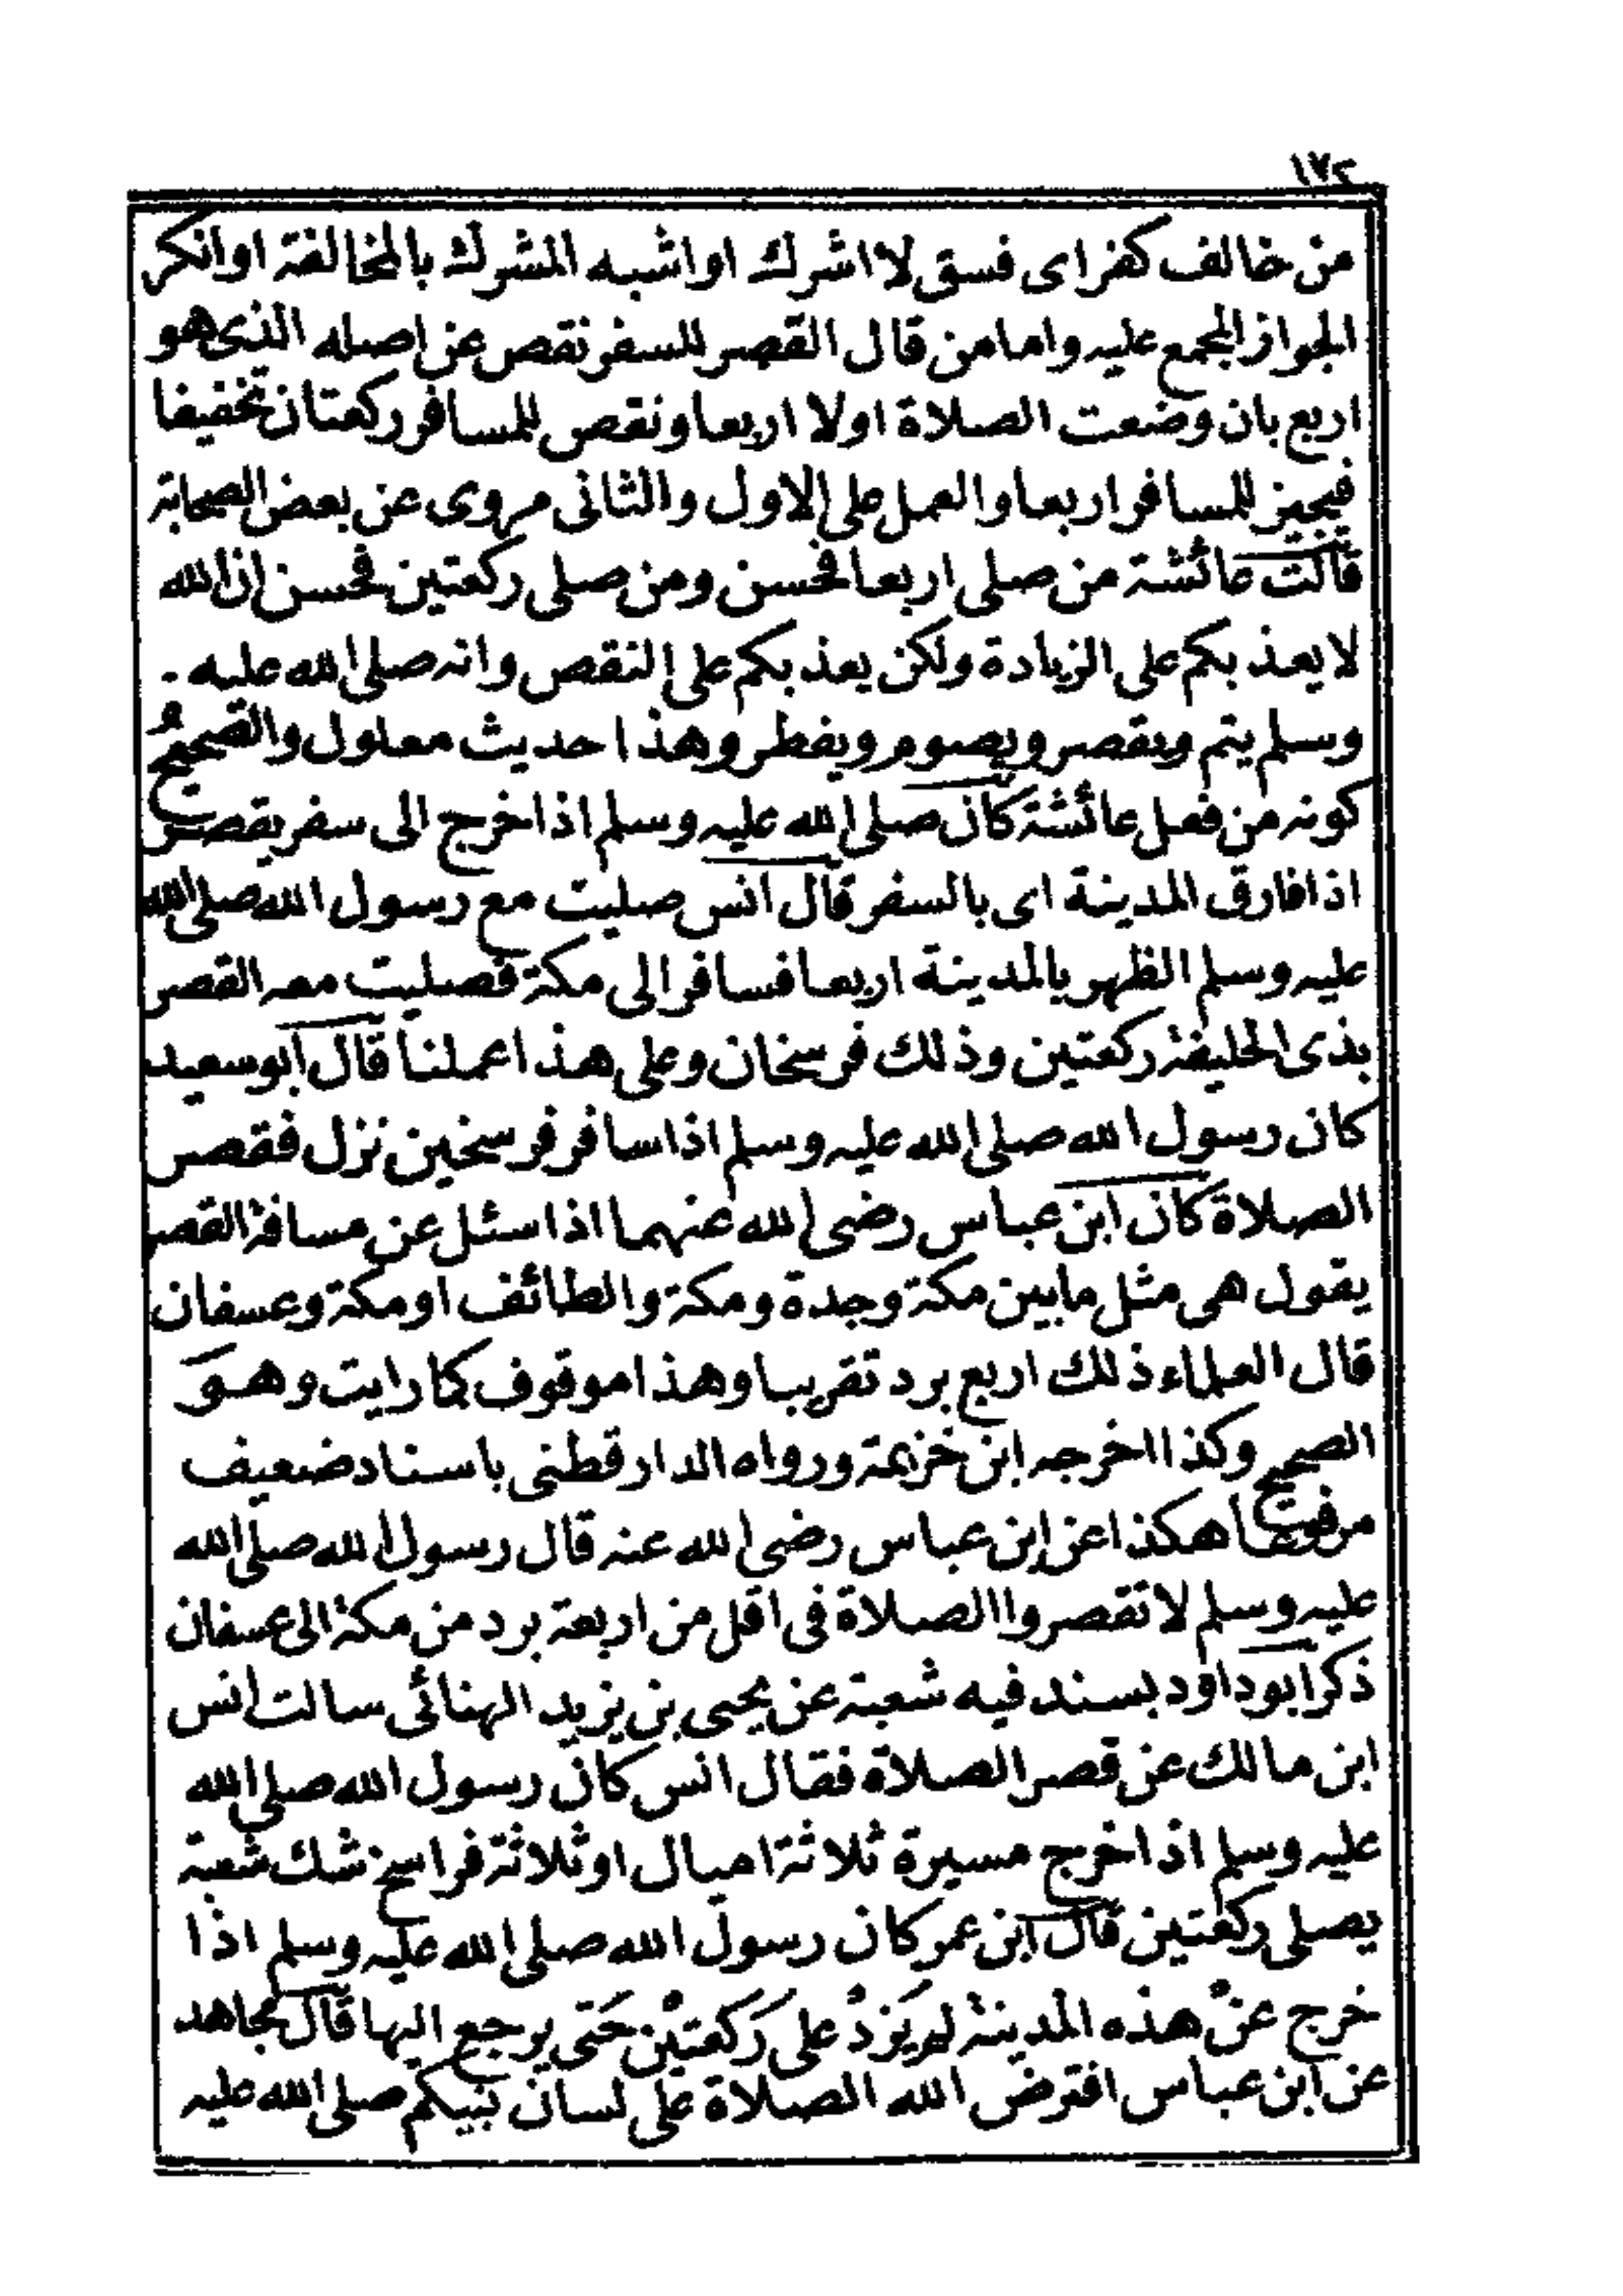 ١٧٢
من خالف كفر اى فسق لا اشرك او اشبه المشرك بالمخالفة او انكر
الجواز المجمع عليه واما من قال القصر للسفر نقص عن اصله الذى هو
اربع بان وضعت الصلاة اولا اربعا ونقص للمسافر ركعتان تخفيفا
فيجيز للمسافر اربعا والعمل على الاول والثانى مروى عن بعض الصحابة
قالت عائشة من صلى اربعا فحسن ومن صلى ركعتين فحسن ان الله
لا يعذبكم على الزيادة ولكن يعذبكم على النقص وانه صلى الله عليه -
وسلم يتم ويقصر ويصوم ويفطر وهذا حديث معلول والصحيحُ
كونه من فعل عائشة كان صلى الله عليه وسلم اذا خرج الى سفر يقصر
اذا فارق المدينة اى بالسفر قال انس صليت مع رسول الله صلى الله
عليه وسلم الظهر بالمدينة اربعا فسافر الى مكة فصليت معه القصر
بذى الحليفة ركعتين وذلك فرسخان وعلى هذا عملنا قال ابو سعيد
كان رسول الله صلى الله عليه وسلم اذا سافر فرسخين نزل فقصر
الصلاة كان ابن عباس رضى الله عنهما اذا سئل عن مسافة القصر
يقول هى مثل ما بين مكة وجدة ومكة والطائف او مكة وعسفان
قال العلماء ذلك اربع برد تقريبا وهذا موقوف كما رايت وهو
الصحيح وكذا اخرجه ابن خزيمة ورواه الدارقطنى باسناد ضعيف
هكذا عن ابن عباس رضى الله عنه قال رسول الله صلى الله
عليه وسلم لا تقصروا الصلاة فى اقل من اربعة برد من مكة الى عسفان
ذكر ابو داود بسند فيه شعبة عن يحيى بن يزيد الهنائى سالت انس
ابن مالك عن قصر الصلاة فقال انس كان رسول الله صلى الله
عليه وسلم اذا خرج مسيرة ثلاثة اميال او ثلاثة فراسخ شك شعبة
يصلى ركعتين قال ابن عمر كان رسول الله صلى الله عليه وسلم اذا
خرج عنْ هذه المدينة لم يَزدْ على رَكعتيْن حَتى يرجع اليها قال مجاهد
عن ابن عباس افترض الله الصلاة على لسان نبيكم صلى الله عليه